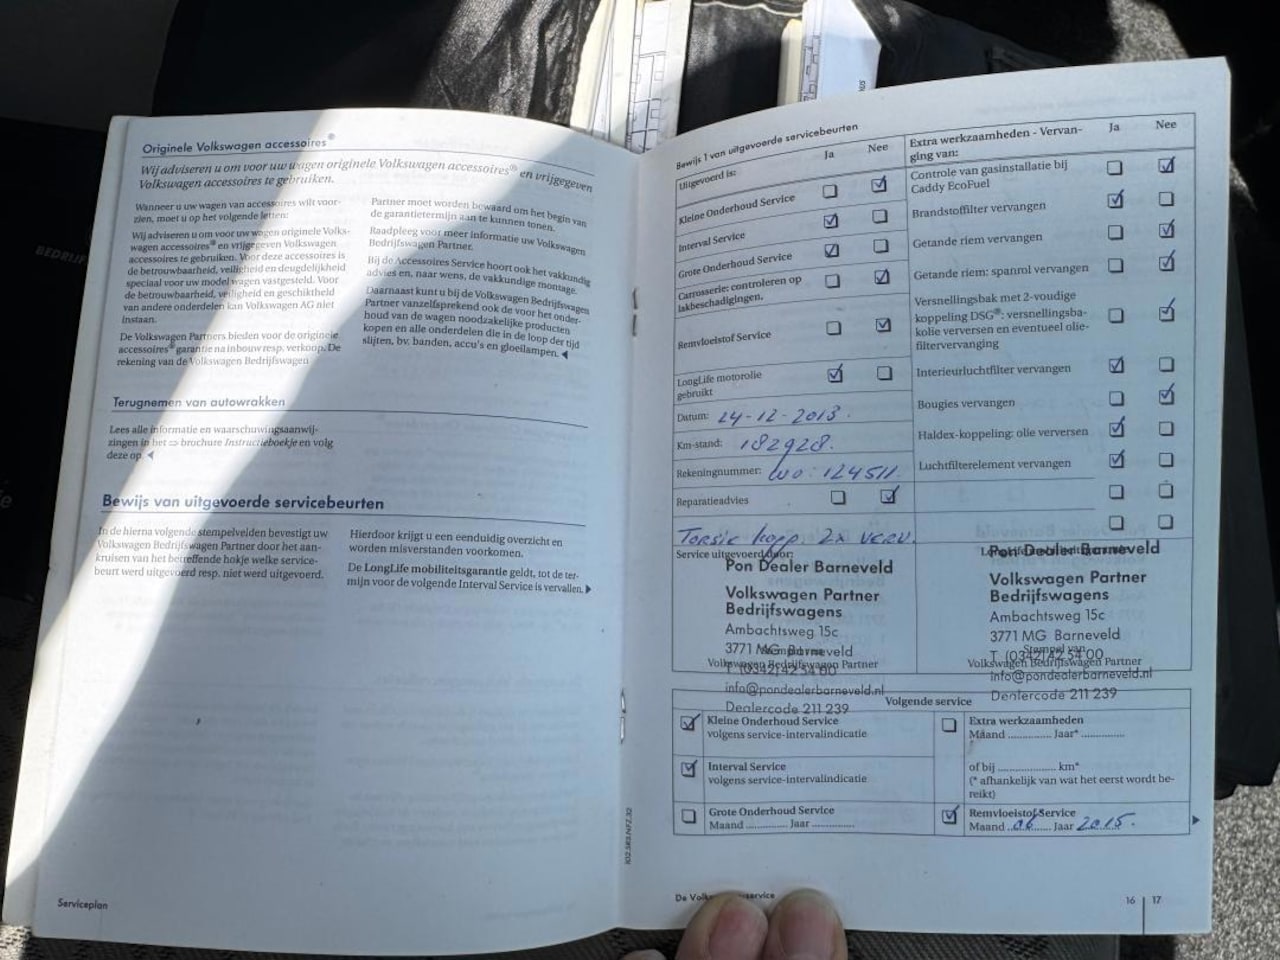 BEDRIJF
Originele Volkswagen accessoires®
Wij adviseren u om voor uw wagen originele Volkswagen accessoires® en vrijgegeven
Volkswagen accessoires te gebruiken.
Wanneer u uw wagen van accessoires wilt voor-
zien, moet u op het volgende letten:
Wij adviseren u om voor uw wagen originele Volks-
wagen accessoires® en vrijgegeven Volkswagen
accessoires te gebruiken. Voor deze accessoires is
de betrouwbaarheid, veiligheid en deugdelijkheid
speciaal voor uw model wagen vastgesteld. Voor
de betrouwbaarheid, veiligheid en geschiktheid
van andere onderdelen kan Volkswagen AG niet
instaan.
De Volkswagen Partners bieden voor de originele
accessoires® garantie na inbouw resp. verkoop. De
rekening van de Volkswagen Bedrijfswagen
Partner moet worden bewaard om het begin van
de garantietermijn aan te kunnen tonen.
Raadpleeg voor meer informatie uw Volkswagen
Bedrijfswagen Partner.
Bij de Accessoires Service hoort ook het vakkundig
advies en, naar wens, de vakkundige montage.
Daarnaast kunt u bij de Volkswagen Bedrijfswagen
Partner vanzelfsprekend ook de voor het onder-
houd van de wagen noodzakelijke producten
kopen en alle onderdelen die in de loop der tijd
slijten, bv. banden, accu's en gloeilampen. ◀
Terugnemen van autowrakken
Lees alle informatie en waarschuwingsaanwij-
zingen in het ⇨ brochure Instructieboekje en volg
deze op. ◀
Bewijs van uitgevoerde servicebeurten
In de hierna volgende stempelvelden bevestigt uw
Volkswagen Bedrijfswagen Partner door het aan-
kruisen van het betreffende hokje welke service-
beurt werd uitgevoerd resp. niet werd uitgevoerd.
Hierdoor krijgt u een eenduidig overzicht en
worden misverstanden voorkomen.
De LongLife mobiliteitsgarantie geldt, tot de ter-
mijn voor de volgende Interval Service is vervallen. ▶
Serviceplan
Bewijs 1 van uitgevoerde servicebeurten
Uitgevoerd is:
Ja Nee
Kleine Onderhoud Service
Interval Service
Grote Onderhoud Service
Carrosserie: controleren op
lakbeschadigingen.
Remvloeistof Service
LongLife motorolie
gebruikt
Datum: 24-12-2013.
Km-stand: 182928.
Rekeningnummer: wo: 124511.
Reparatieadvies
Torsie kopp. 2x verv.
Service uitgevoerd door:
Pon Dealer Barneveld
Volkswagen Partner
Bedrijfswagens
Ambachtsweg 15c
3771 MG Barneveld
T (0342) 42 54 00
Volkswagen Bedrijfswagen Partner
info@pondealerbarneveld.nl
Dealercode 211 239
Extra werkzaamheden - Vervan-
ging van:
Ja Nee
Controle van gasinstallatie bij
Caddy EcoFuel
Brandstoffilter vervangen
Getande riem vervangen
Getande riem: spanrol vervangen
Versnellingsbak met 2-voudige
koppeling DSG®: versnellingsba-
kolie verversen en eventueel olie-
filtervervanging
Interieurluchtfilter vervangen
Bougies vervangen
Haldex-koppeling: olie verversen
Luchtfilterelement vervangen
Pon Dealer Barneveld
Volkswagen Partner
Bedrijfswagens
Ambachtsweg 15c
3771 MG Barneveld
Stempel van
T (0342) 42 54 00
Volkswagen Bedrijfswagen Partner
info@pondealerbarneveld.nl
Dealercode 211 239
Volgende service
Kleine Onderhoud Service
volgens service-intervalindicatie
Interval Service
volgens service-intervalindicatie
Grote Onderhoud Service
Maand ............. Jaar .............
Extra werkzaamheden
Maand ............. Jaar* .............
of bij ................... km*
(* afhankelijk van wat het eerst wordt be-
reikt)
Remvloeistof Service
Maand 06 Jaar 2015.
102.5R3.NFZ.32
De
16 | 17